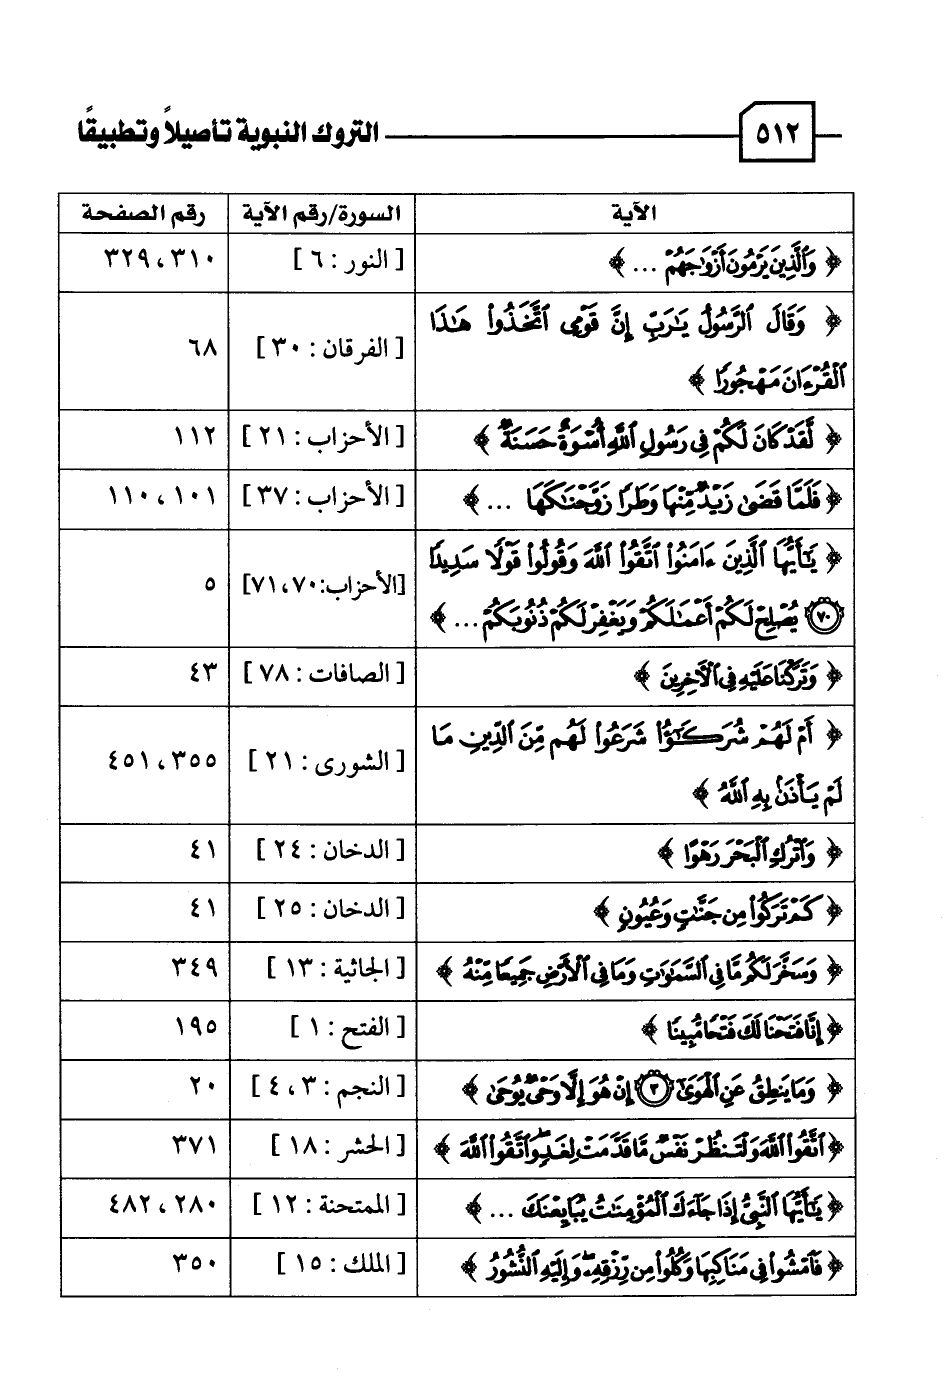 ٥١٢ التروك النبوية تأصيلاً وتطبيقًا
الآية السورة/رقم الآية رقم الصفحة
﴿ وَٱلَّذِينَ يَرْمُونَ أَزْوَٰجَهُمْ ... ﴾ [ النور : ٦ ] ٣١٠ ، ٣٢٩
﴿ وَقَالَ ٱلرَّسُولُ يَٰرَبِّ إِنَّ قَوْمِى ٱتَّخَذُوا۟ هَٰذَا
ٱلْقُرْءَانَ مَهْجُورًا ﴾ [ الفرقان : ٣٠ ] ٦٨
﴿ لَّقَدْ كَانَ لَكُمْ فِى رَسُولِ ٱللَّهِ أُسْوَةٌ حَسَنَةٌ ﴾ [ الأحزاب : ٢١ ] ١١٢
﴿ فَلَمَّا قَضَىٰ زَيْدٌ مِّنْهَا وَطَرًا زَوَّجْنَٰكَهَا ... ﴾ [ الأحزاب : ٣٧ ] ١٠١ ، ١١٠
﴿ يَٰٓأَيُّهَا ٱلَّذِينَ ءَامَنُوا۟ ٱتَّقُوا۟ ٱللَّهَ وَقُولُوا۟ قَوْلًا سَدِيدًا
﴿٧٠﴾ يُصْلِحْ لَكُمْ أَعْمَٰلَكُمْ وَيَغْفِرْ لَكُمْ ذُنُوبَكُمْ ... ﴾ [الأحزاب: ٧٠ ، ٧١] ٥
﴿ وَتَرَكْنَا عَلَيْهِ فِى ٱلْءَاخِرِينَ ﴾ [ الصافات : ٧٨ ] ٤٣
﴿ أَمْ لَهُمْ شُرَكَٰٓؤُا۟ شَرَعُوا۟ لَهُم مِّنَ ٱلدِّينِ مَا
لَمْ يَأْذَنۢ بِهِ ٱللَّهُ ﴾ [ الشورى : ٢١ ] ٣٥٥ ، ٤٥١
﴿ وَٱتْرُكِ ٱلْبَحْرَ رَهْوًا ﴾ [ الدخان : ٢٤ ] ٤١
﴿ كَمْ تَرَكُوا۟ مِن جَنَّٰتٍ وَعُيُونٍ ﴾ [ الدخان : ٢٥ ] ٤١
﴿ وَسَخَّرَ لَكُم مَّا فِى ٱلسَّمَٰوَٰتِ وَمَا فِى ٱلْأَرْضِ جَمِيعًا مِّنْهُ ﴾ [ الجاثية : ١٣ ] ٣٤٩
﴿ إِنَّا فَتَحْنَا لَكَ فَتْحًا مُّبِينًا ﴾ [ الفتح : ١ ] ١٩٥
﴿ وَمَا يَنطِقُ عَنِ ٱلْهَوَىٰٓ ﴿٣﴾ إِنْ هُوَ إِلَّا وَحْىٌ يُوحَىٰ ﴾ [ النجم : ٣ ، ٤ ] ٢٠
﴿ ٱتَّقُوا۟ ٱللَّهَ وَلْتَنظُرْ نَفْسٌ مَّا قَدَّمَتْ لِغَدٍ ۖ وَٱتَّقُوا۟ ٱللَّهَ ﴾ [ الحشر : ١٨ ] ٣٧١
﴿ يَٰٓأَيُّهَا ٱلنَّبِىُّ إِذَا جَآءَكَ ٱلْمُؤْمِنَٰتُ يُبَايِعْنَكَ ... ﴾ [ الممتحنة : ١٢ ] ٢٨٠ ، ٤٨٢
﴿ فَٱمْشُوا۟ فِى مَنَاكِبِهَا وَكُلُوا۟ مِن رِّزْقِهِۦ ۖ وَإِلَيْهِ ٱلنُّشُورُ ﴾ [ الملك : ١٥ ] ٣٥٠